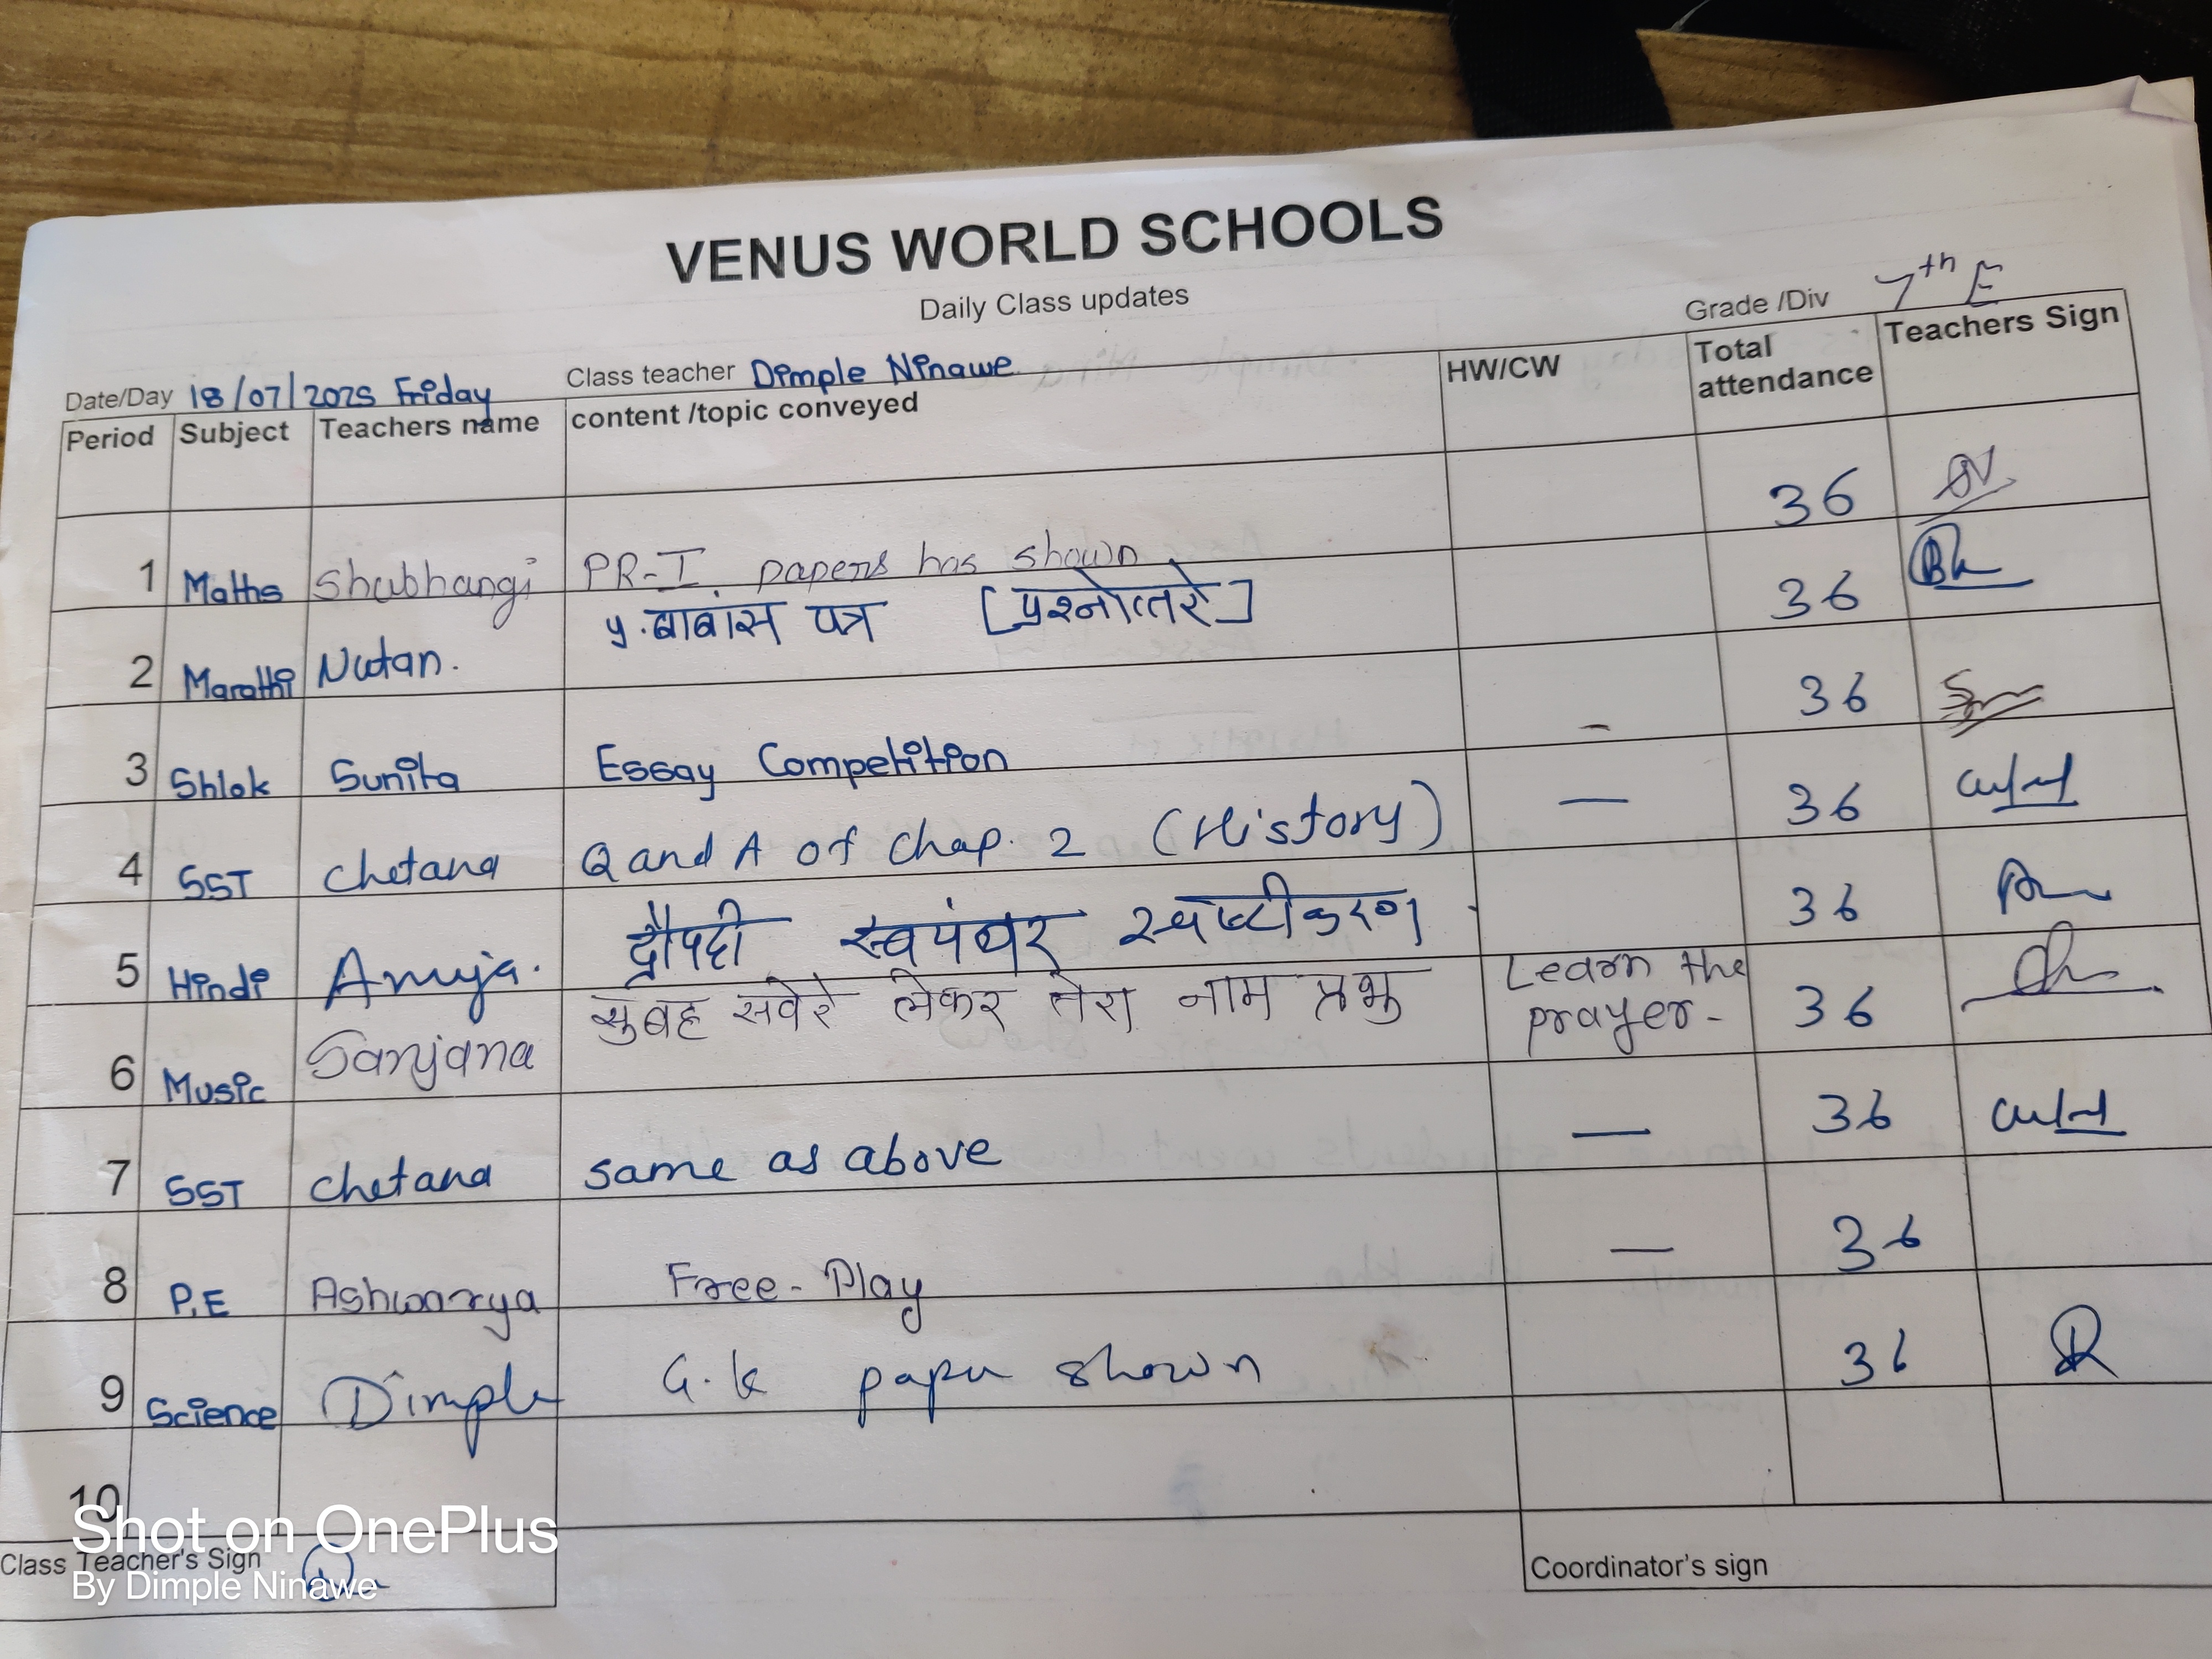 VENUS WORLD SCHOOLS
Daily Class updates
Grade /Div 7th E
Date/Day 18/07/2025 Friday Class teacher Dimple Ninawe
Period Subject Teachers name content /topic conveyed HW/CW Total attendance Teachers Sign
1 Maths Shubhangi PR-I papers has shown 36
2 Marathi Nutan. 5. बाबांस पत्र [प्रश्नोत्तरे] 36
3 Shlok Sunita Essay Competition - 36
4 SST Chetana Q and A of Chap. 2 (History) — 36
5 Hindi Anuja. द्रौपदी स्वयंवर स्पष्टीकरण 36
6 Music Sanjana सुबह सवेरे लेकर तेरा नाम प्रभु Learn the prayer- 36
7 SST Chetana same as above — 36
8 P.E Ashwarya Free-Play — 36
9 Science Dimple G.k paper shown 36
10
Class Teacher's Sign
Coordinator's sign
Shot on OnePlus
By Dimple Ninawe